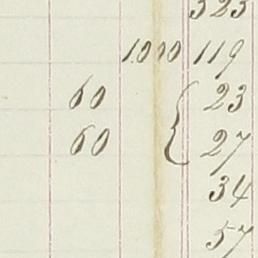 323
1000 119
60 { 23
60 27
34
57